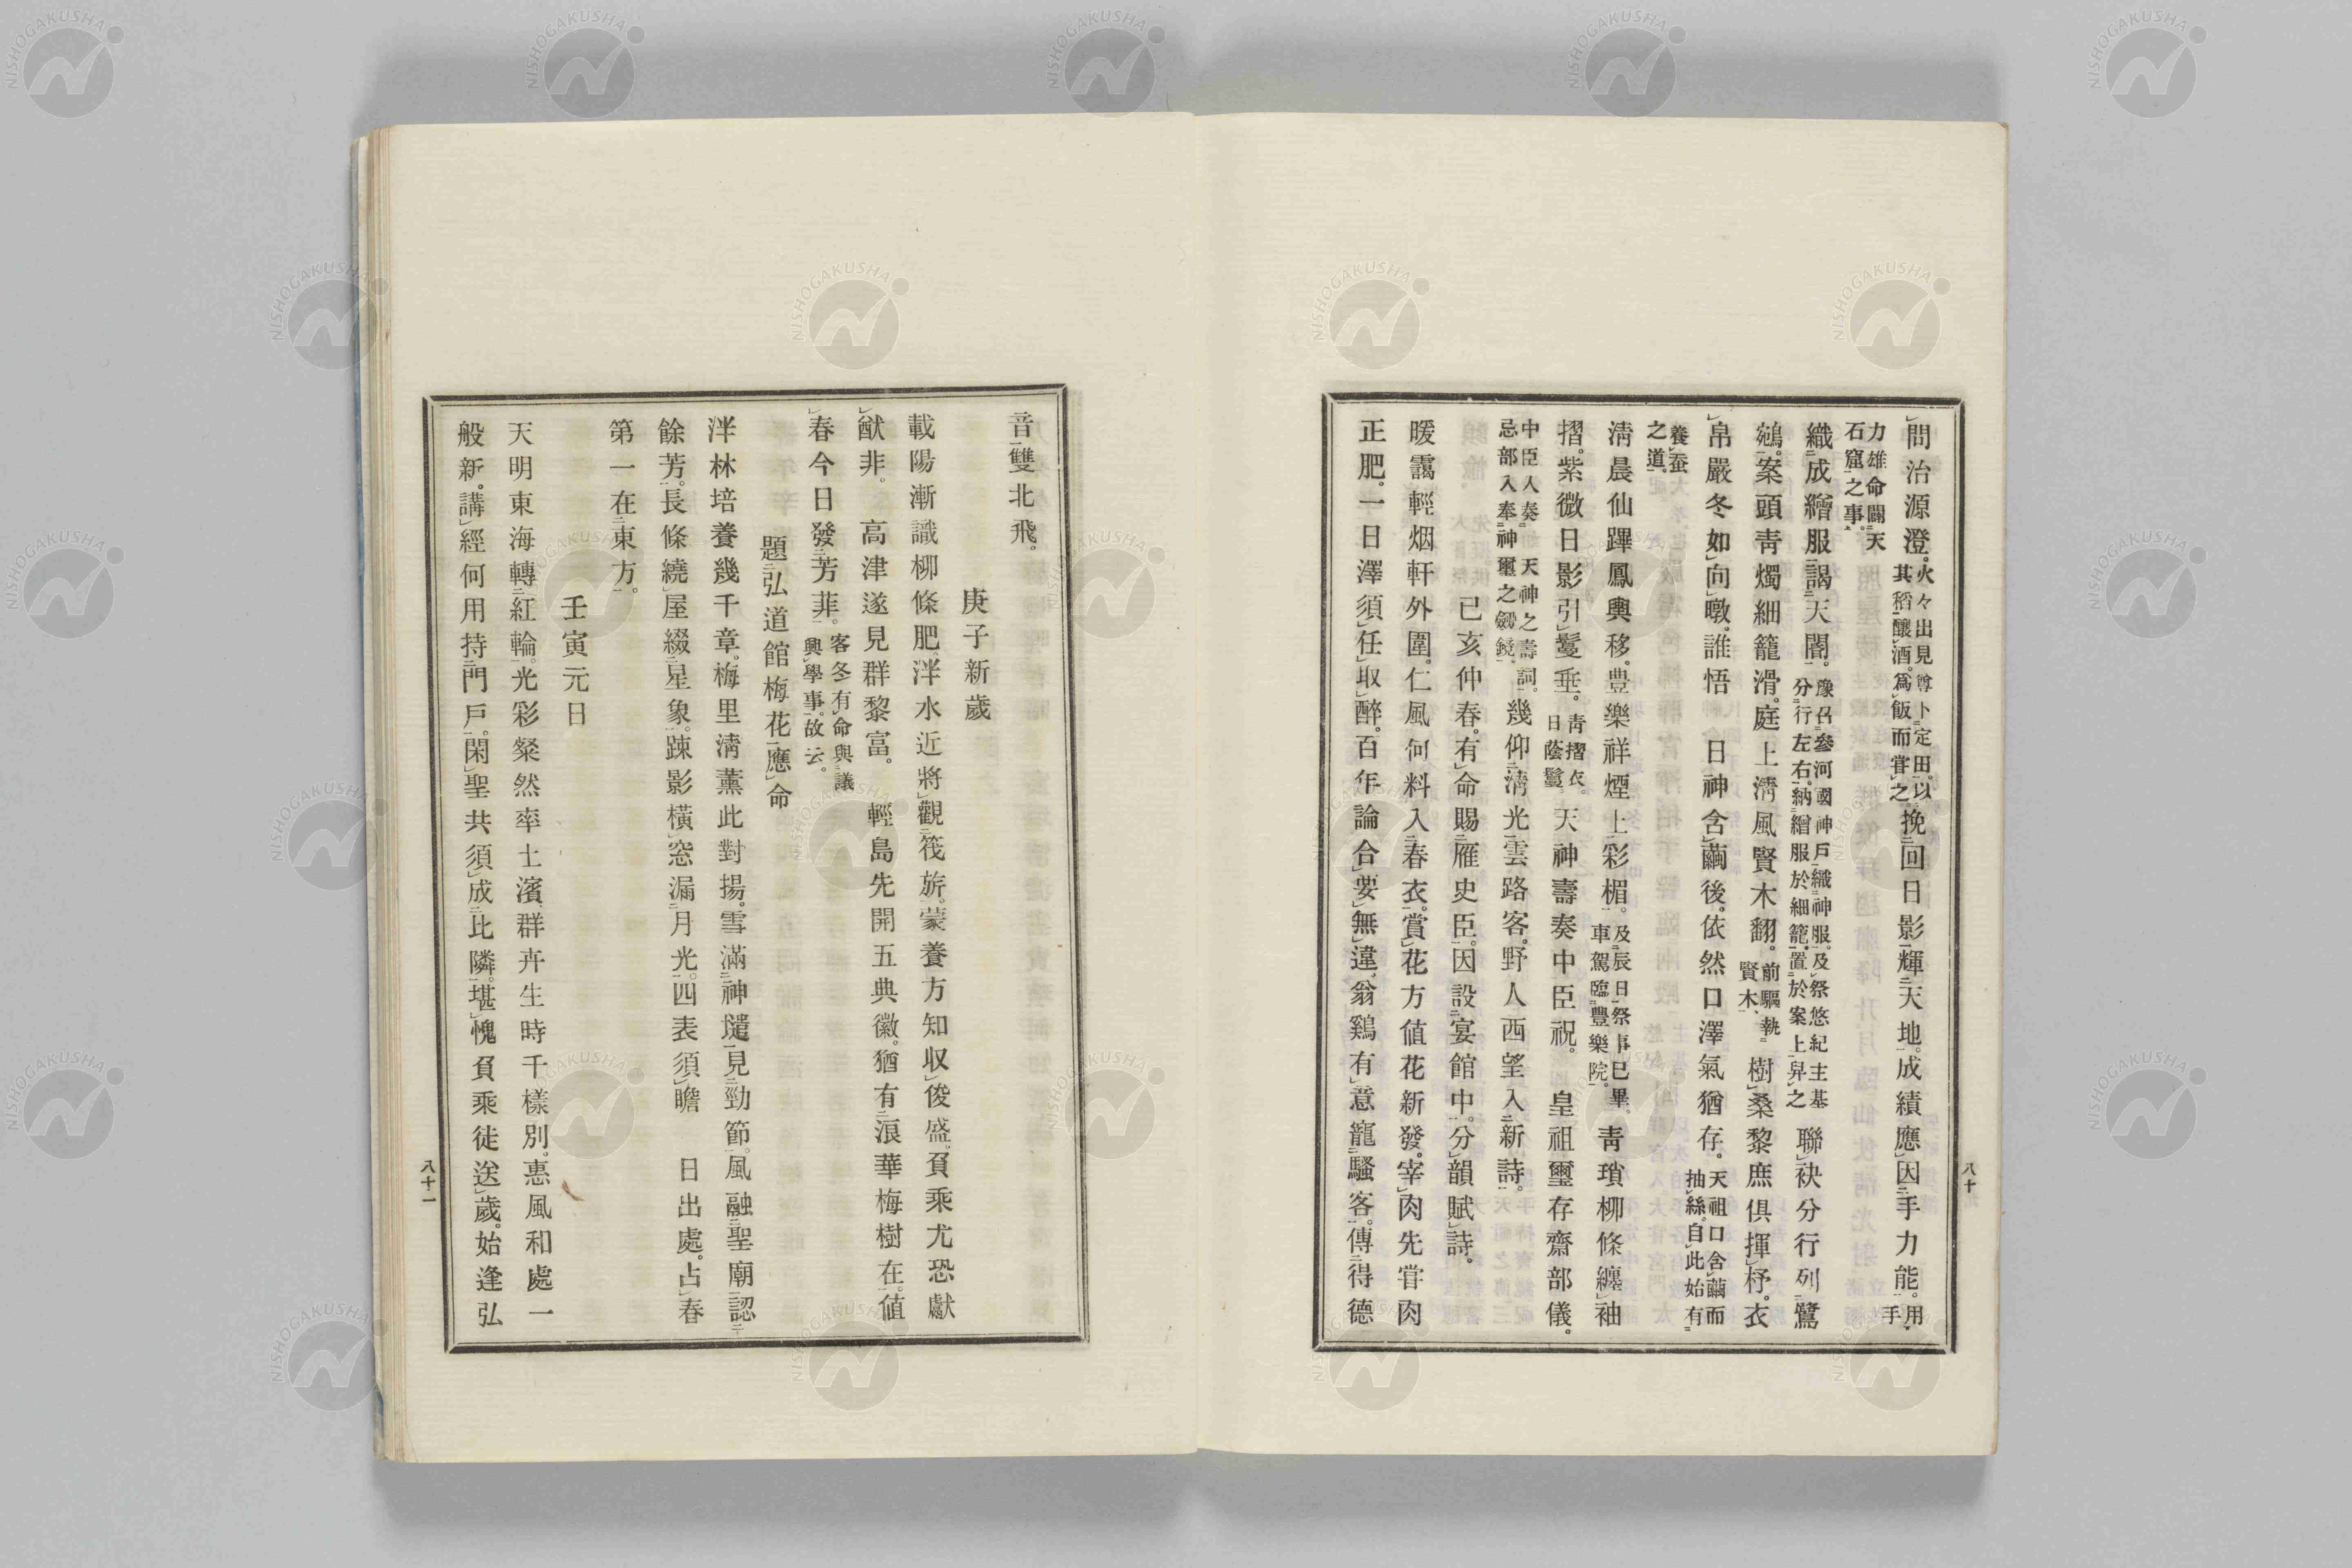 問治源澄。火々出見尊卜定田。以其稻釀酒。爲飯而甞之。挽回日影輝天地。成績應因手力能。用手
力雄命闢天石窟之事。
織成繒服謁天閽。豫召參河國神戶織神服。及祭悠紀主基分行左右。納繒服於細籠。置於案上舁之聯袂分行列鷺
鵷。案頭靑燭細籠滑。庭上淸風賢木翻。前驅執賢木、樹桑黎庶俱揮杼。衣
帛嚴冬如向暾。誰悟 日神含繭後。依然口澤氣猶存。天祖口含繭而抽絲。自此始有
養蚕之道。
淸晨仙蹕鳳輿移。豊樂祥煙上彩楣。及辰日祭事已畢。車駕臨豐樂院。靑瑣柳條纏袖
摺。紫微日影引鬘垂。靑摺衣。日蔭鬘。天神壽奏中臣祝。皇祖璽存齋部儀。
中臣人奏天神之壽詞。忌部入奉神璽之劔鏡。幾仰淸光雲路客。野人西望入新詩。
已亥仲春。有命賜雁史臣。因設宴館中。分韻賦詩。
暖靄輕烟軒外圍。仁風何料入春衣。賞花方値花新發。宰肉先甞肉
正肥。一日澤須任取醉。百年論合要無違。翁鷄有意寵騷客。傳得德
八十
音雙北飛。
庚子新歲
載陽漸識柳條肥。泮水近將觀筏旂。蒙養方知収俊盛。負乘尤恐獻
猷非。 高津遂見群黎富。 輕島先開五典徽。猶有浪華梅樹在。値
春今日發芳菲。客冬有命與議興學事。故云。
題弘道館梅花應命
泮林培養幾千章。梅里淸薰此對揚。雪滿神壝見勁節。風融聖廟認
餘芳。長條繞屋綴星象。踈影橫窓漏月光。四表須瞻 日出處。占春
第一在東方。
壬寅元日
天明東海轉紅輪。光彩粲然率土濱。群卉生時千樣別。惠風和處一
般新。講經何用持門戶。閑聖共須成比隣。堪愧負乘徒送歲。始逢弘
八十一
NISHOGAKUSHA